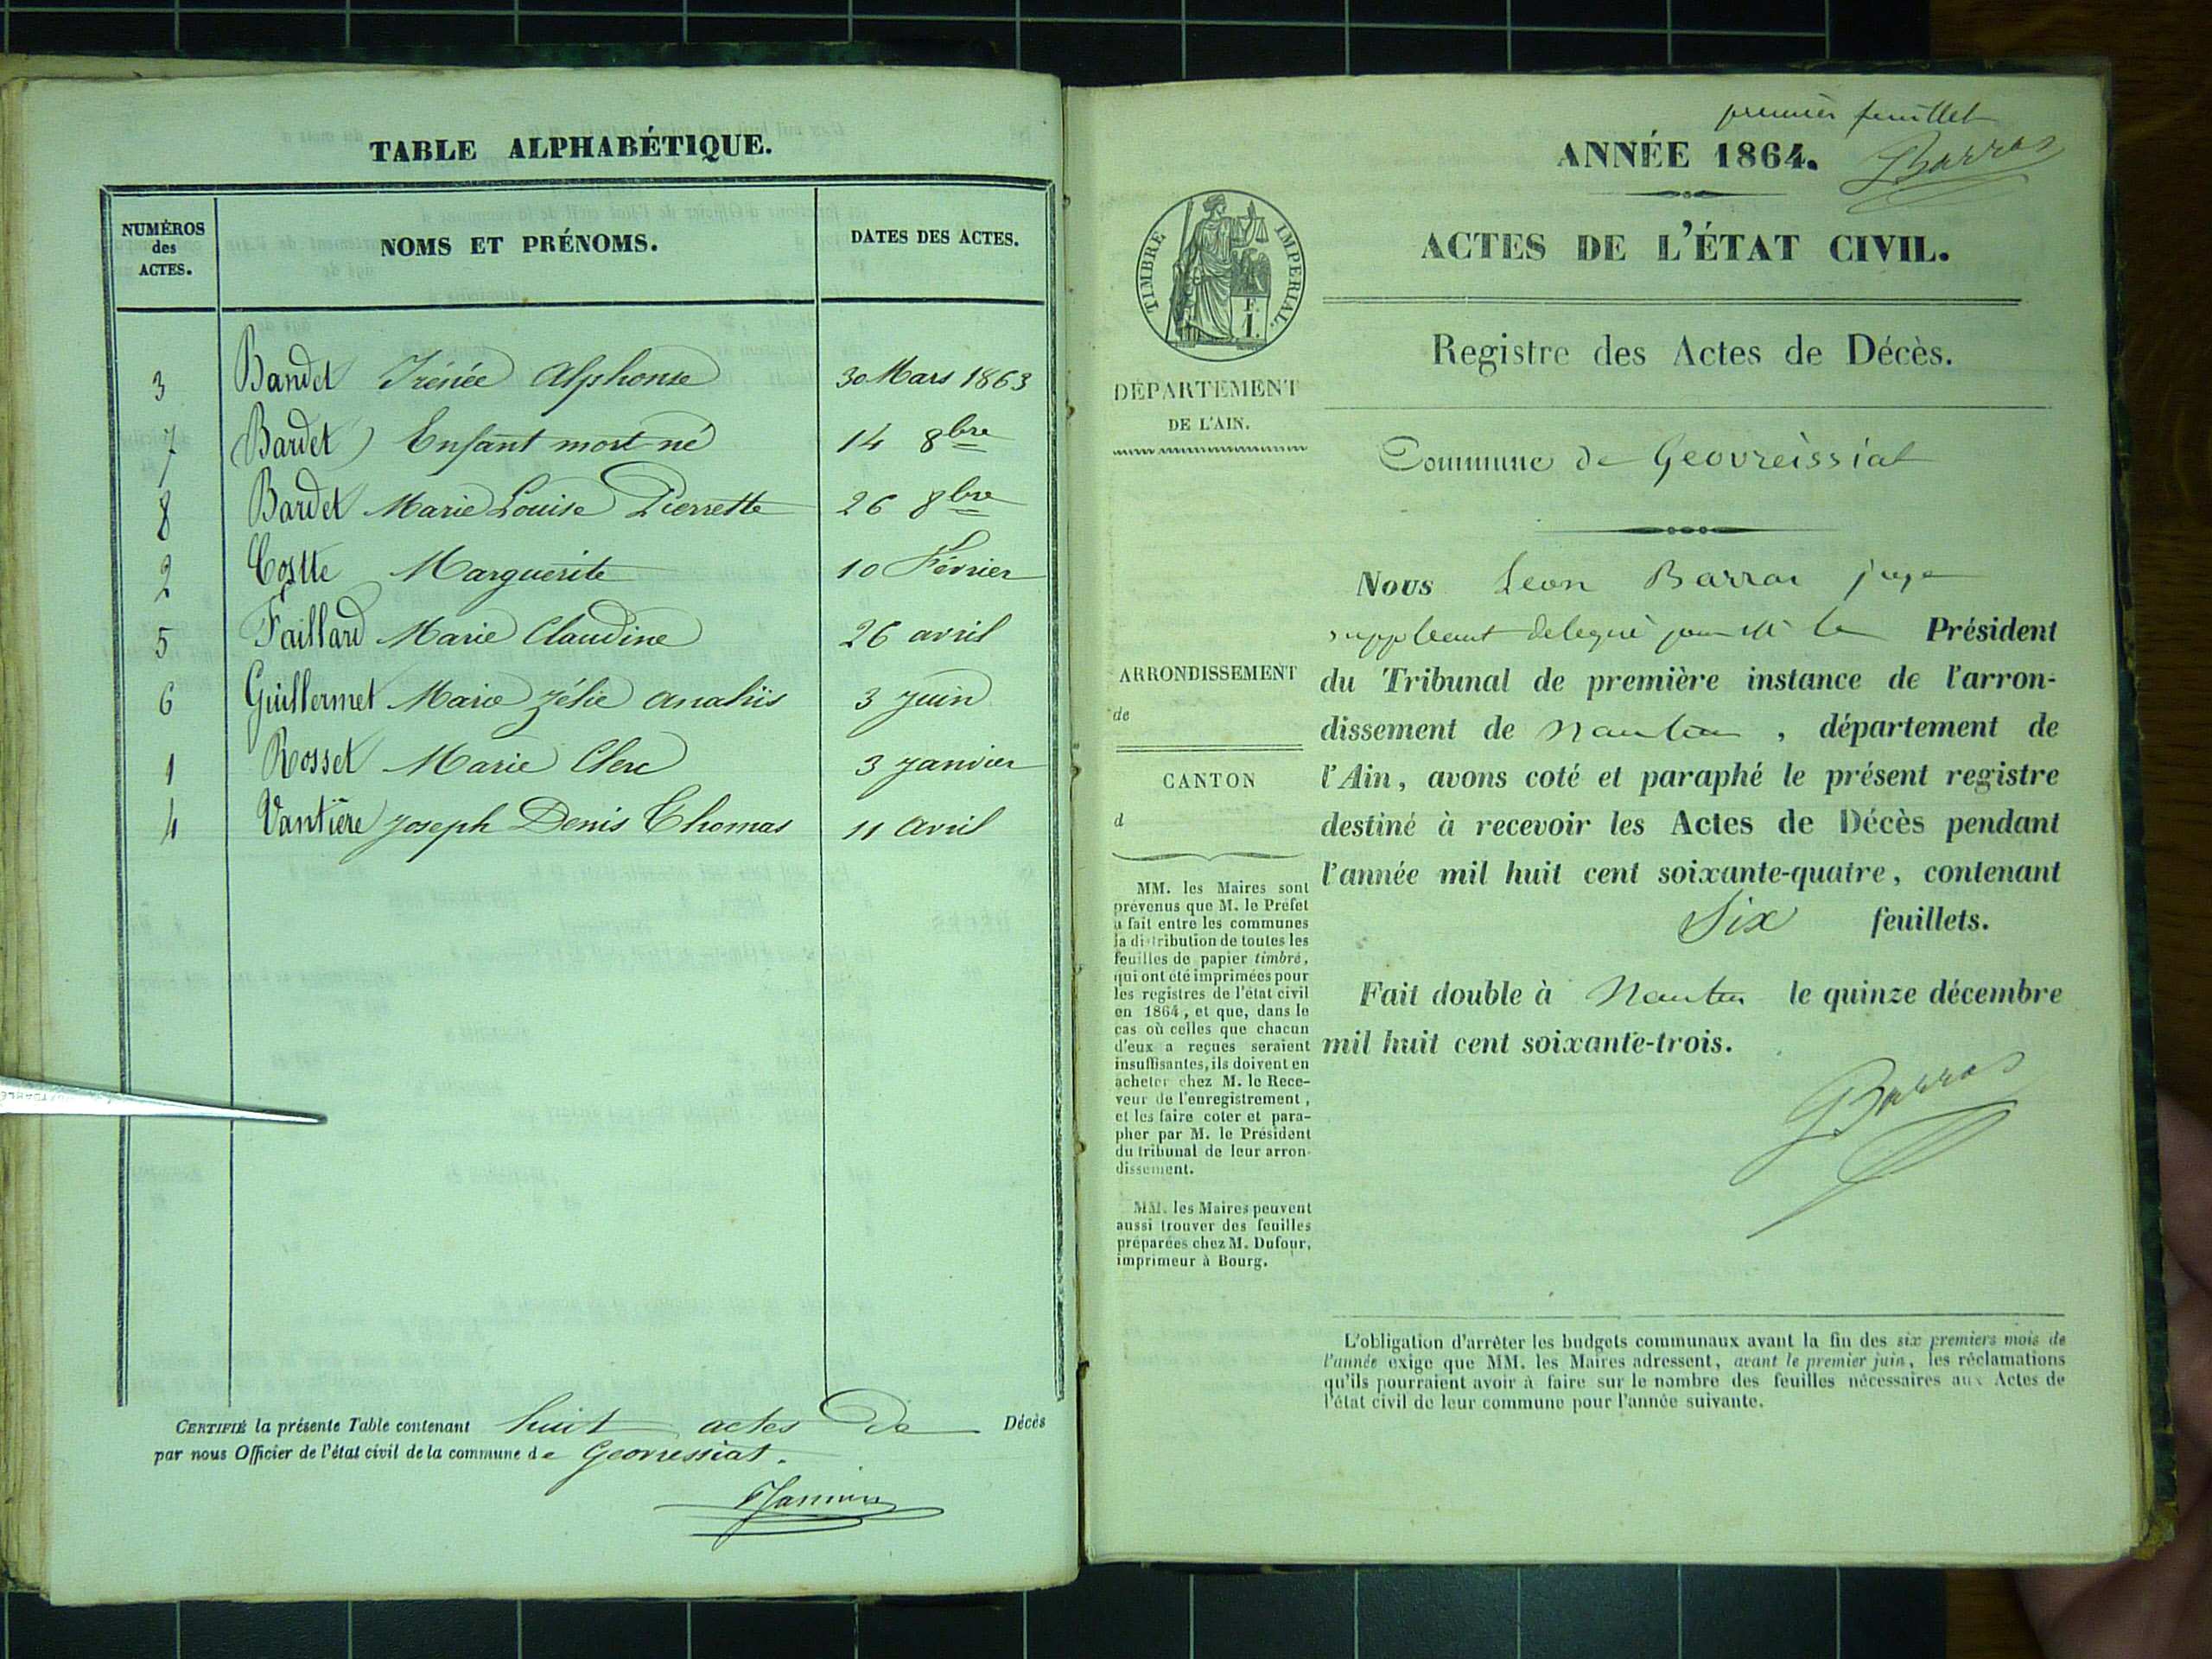 TABLE ALPHABÉTIQUE.
NUMÉROS
des
ACTES.
NOMS ET PRÉNOMS.
DATES DES ACTES.
3 Bandet Irénée Alphonse 30 Mars 1863
7 (Bardet) Enfant mort né 14 8bre
8 Bardet Marie Louise Pierrette 26 8bre
2 Costte Marguerite 10 Février
5 Faillard Marie Claudine 26 avril
6 Guillermet Marie zélie anaïs 3 juin
1 Rosset Marie Clerc 3 janvier
4 Vantière joseph Denis Thomas 11 avril
CERTIFIÉ la présente Table contenant huit actes De Décès
par nous Officier de l'état civil de la commune de Geovressiat.
premier feuillet
ANNÉE 1864.
Barras
TIMBRE IMPÉRIAL.
ACTES DE L'ÉTAT CIVIL.
Registre des Actes de Décès.
DÉPARTEMENT
DE L'AIN.
Commune de Geovreissiat
Nous Leon Barras juge
suppleant delegué par M le Président
ARRONDISSEMENT
de
du Tribunal de première instance de l'arron-
dissement de Nantua, département de
CANTON
d
l'Ain, avons coté et paraphé le présent registre
destiné à recevoir les Actes de Décès pendant
l'année mil huit cent soixante-quatre, contenant
Six feuillets.
Fait double à Nantua le quinze décembre
mil huit cent soixante-trois.
Barras
MM. les Maires sont
prévenus que M. le Préfet
a fait entre les communes
la distribution de toutes les
feuilles de papier timbré,
qui ont été imprimées pour
les registres de l'état civil
en 1864, et que, dans le
cas où celles que chacun
d'eux a reçues seraient
insuffisantes, ils doivent en
acheter chez M. le Rece-
veur de l'enregistrement,
et les faire coter et para-
pher par M. le Président
du tribunal de leur arron-
dissement.
MM. les Maires peuvent
aussi trouver des feuilles
préparées chez M. Dufour,
imprimeur à Bourg.
L'obligation d'arrêter les budgets communaux avant la fin des six premiers mois de
l'année exige que MM. les Maires adressent, avant le premier juin, les réclamations
qu'ils pourraient avoir à faire sur le nombre des feuilles nécessaires aux Actes de
l'état civil de leur commune pour l'année suivante.